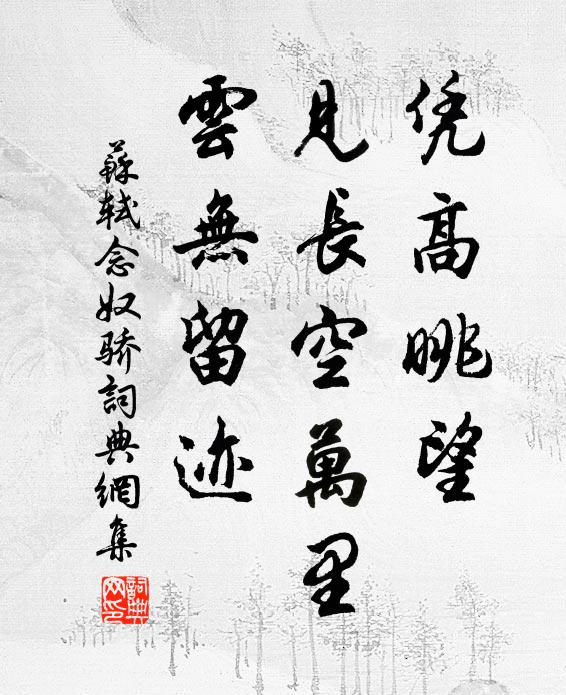 凭高眺望
見長空萬里
雲無留迹
蘇軾念奴骄詞典網集
詞典